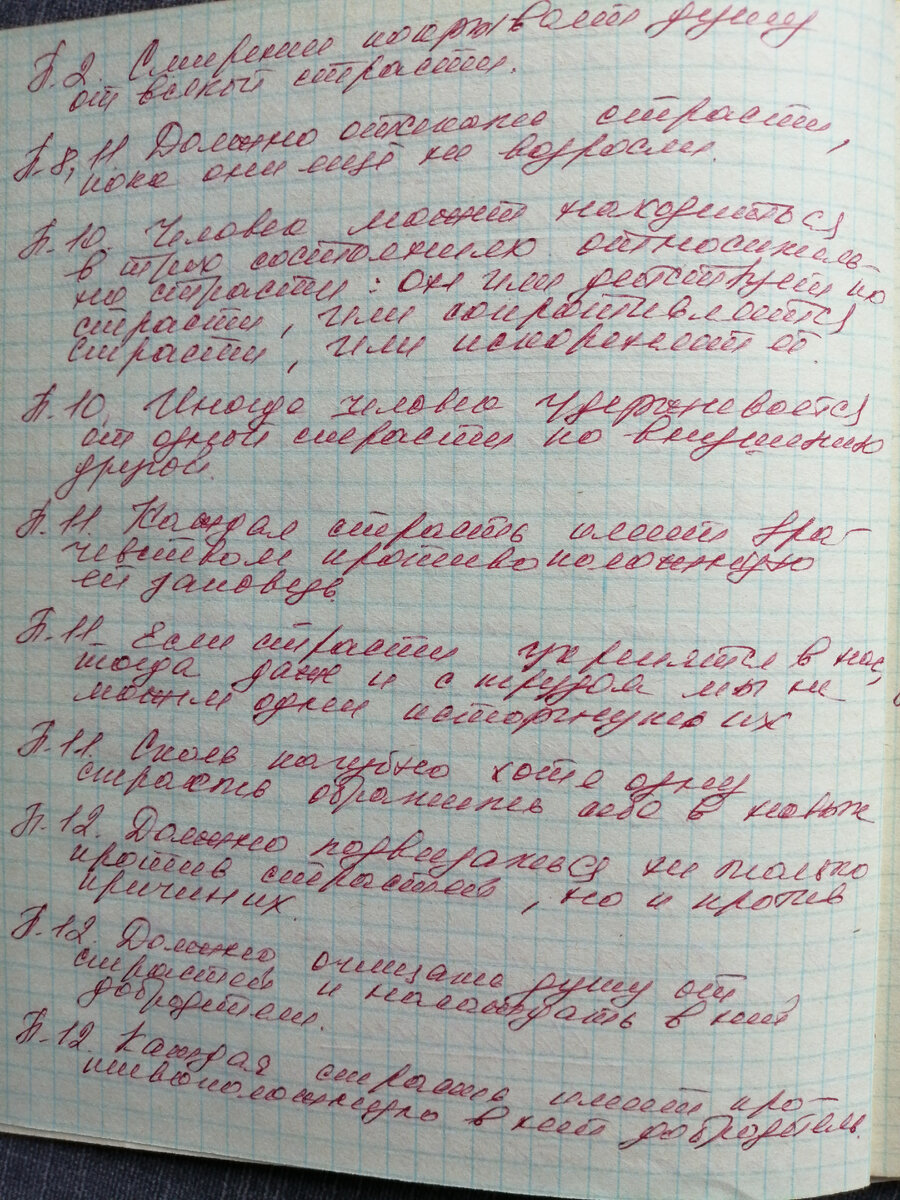 П.2. Смирение покрывает душу
от всякой страсти.
П.8,11 Должно отсекать страсти,
пока они ещё не возросли.
П.10. Человек может находиться
в трех состояниях относитель-
но страсти: он или действует по
страсти, или сопротивляется
страсти, или искореняет её
П.10. Иногда человек удерживается
от одной страсти по внушению
другой.
П.11. Каждая страсть имеет вра-
чевством противоположную
ей заповедь.
П.11. Если страсти укрепятся в нас,
тогда даже и с трудом мы не
можем одни исторгнуть их
П.11. Сколь пагубно хотя одну
страсть обратить себе в навык
П.12. Должно подвизаться не только
против страстей, но и против
причин их.
П.12. Должно очищать душу от
страстей и насаждать в ней
добродетели.
П.12. Каждая страсть имеет про-
тивоположную в ней добродетель.